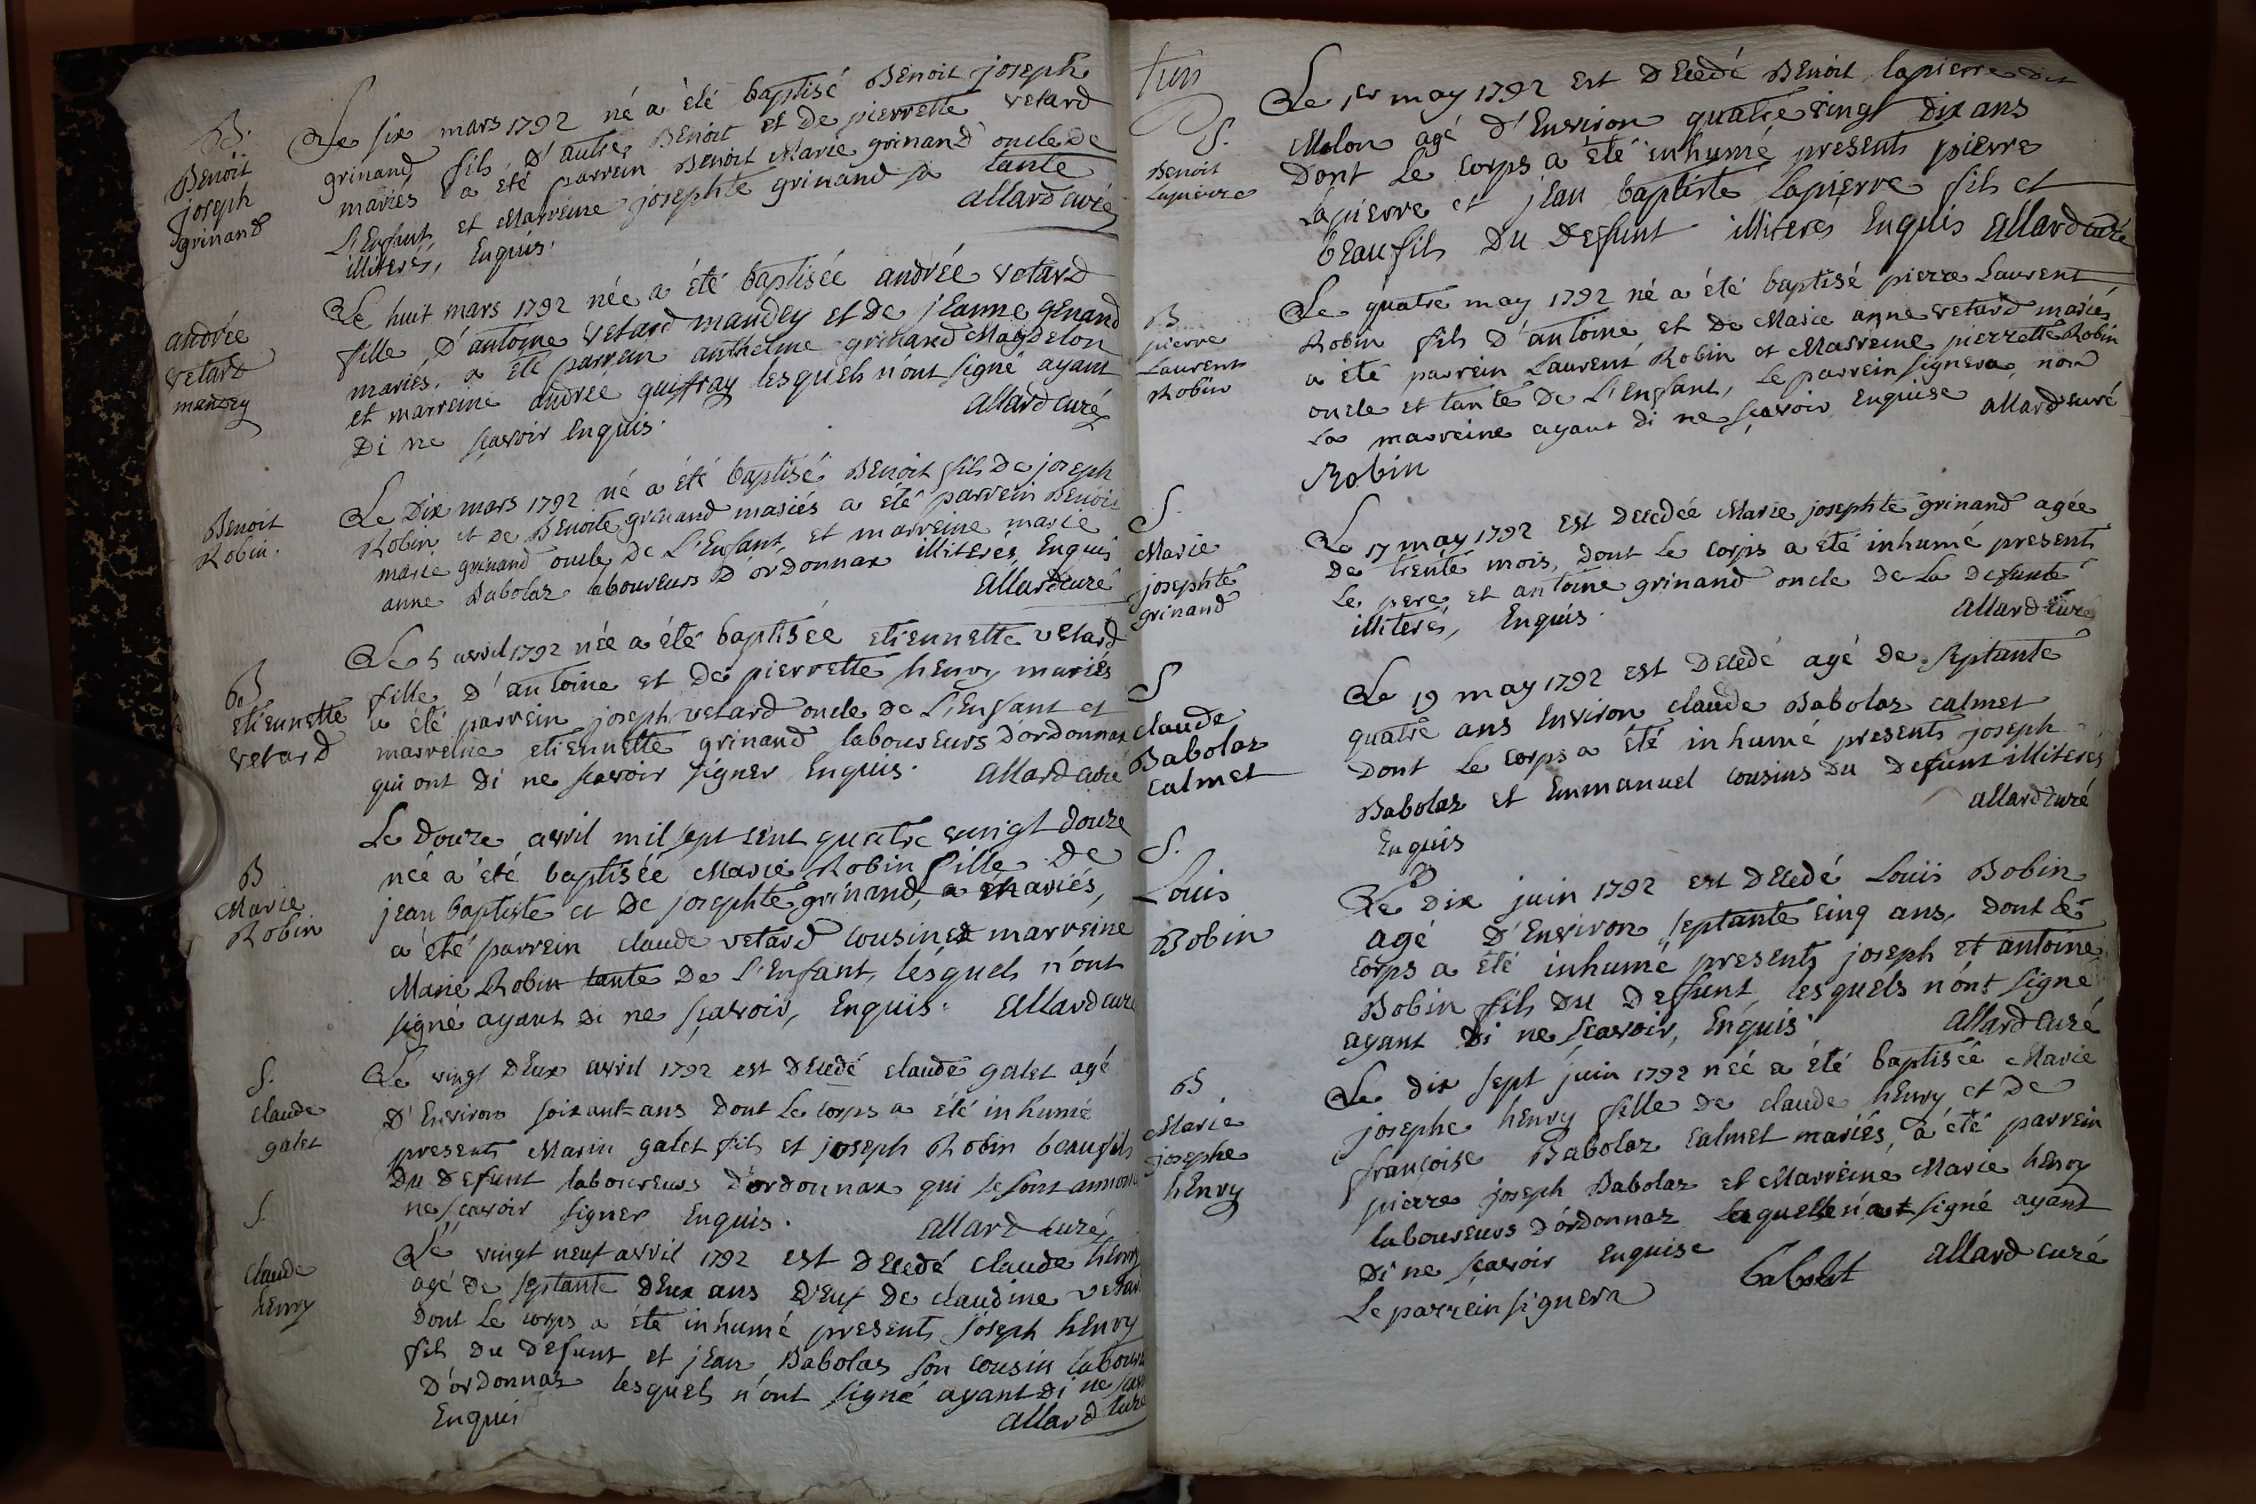 B.
Benoit
joseph
grinand
Le six mars 1792 né a été baptisé Benoit joseph
grinand fils d'autre Benoit et de pierrette vetard
mariés a été parrein Benoit Marie grinand oncle de
L'Enfant et Marreine josephte grinand sa tante
illiterés, Enquis. allard curé
andrée
vetard
mandey
Le huit mars 1792 née a été baptisée andrée vetard
fille d'antoine vetard mandey et de jeanne genand
mariés. a été parrein anthelme grinand Magdelon
et marreine andrée guiffray lesquels n'ont signé ayant
Di ne sçavoir Enquis. allard curé
Benoit
Robin.
Le Dix mars 1792 né a été baptisé Benoit fils De joseph
Robin et de Benoite grinand mariés a été parrein Benoit
marie grinand oncle de L'Enfant, et marreine marie
anne Babolaz laboureurs D'ordonnax illiterés Enquis
allard curé
B
etiennette
vetard
Le 5 avril 1792 née a été baptisée etiennette vetard
fille d'antoine et de pierrette henry mariés
a été parrein joseph vetard oncle de L'Enfant et
marreine etiennette grinand laboureurs D'ordonnax
qui ont di ne scavoir signer Enquis. allard curé
B
Marie
Robin
Le Douze avril mil sept cent quatre vingt douze
née a été baptisée Marie Robin fille de
jean baptiste et De josephte grinand, mariés,
a été parrein claude vetard cousin et marreine
Marie Robin tante De L'Enfant, lesquels n'ont
signé ayant di ne sçavoir, Enquis. allard curé
S.
claude
galet
Le vingt deux avril 1792 est décédé claude galet agé
D'Environ soixante ans dont le corps a été inhumé
presents Marin galet fils et joseph Robin beaufils
Du Defunt laboureurs D'ordonnax qui se sont annoncé
ne scavoir signer Enquis. allard curé
S.
claude
henry
Le vingt neuf avril 1792 est Décédé claude henry
agé de septante deux ans veuf de claudine vetard
Dont Le corps a été inhumé presents joseph henry
fils Du Defunt et jean Babolaz son cousin laboureurs
D'ordonnax lesquels n'ont signé ayant di ne scavoir
Enquis allard curé
S.
Benoit
Lapierre
Le 1er may 1792 est Décédé Benoit lapierre dit
Molon agé d'Environ quatre vingt dix ans
Dont Le corps a été inhumé presents pierre
Lapierre et jean baptiste Lapierre fils et
beaufils Du Defunt illiteres Enquis allard curé
B
pierre
Laurent
Robin
Le quatre may 1792 né a été baptisé pierre Laurent
Robin fils D'antoine et de Marie anne vetard mariés,
a été parrein Laurent Robin et Marreine pierrette Robin
oncle et tante De L'Enfant, Le parrein signera, non
La marreine ayant di ne sçavoir Enquise allard curé
Robin
S.
Marie
josephte
grinand
Le 17 may 1792 est Décédée Marie josephte grinand agée
De trente mois, dont Le corps a été inhumé presents
Le pere et antoine grinand oncle de La Defunte
illiterés, Enquis. allard curé
S
claude
Babolaz
calmet
Le 19 may 1792 est Décédé agé De septante
quatre ans Environ claude Babolaz calmet
Dont Le corps a été inhumé presents joseph
Babolaz et Emmanuel cousins Du Defunt illiterés
Enquis allard curé
S.
Louis
Bobin
Le Dix juin 1792 est Décédé Louis Bobin
agé D'Environ septante cinq ans, Dont Le
corps a été inhumé presents joseph et antoine
Bobin fils Du Defunt lesquels n'ont signé
ayant di ne scavoir, Enquis. allard curé
B
Marie
josephe
henry
Le dix sept juin 1792 née a été baptisée Marie
josephe henry fille De claude henry et De
françoise Babolaz calmet mariés, a été parrein
pierre joseph Babolaz et Marreine Marie henry
laboureurs D'ordonnaz laquelle n'a signé ayant
Di ne scavoir Enquise
Le parrein signera babolat allard curé